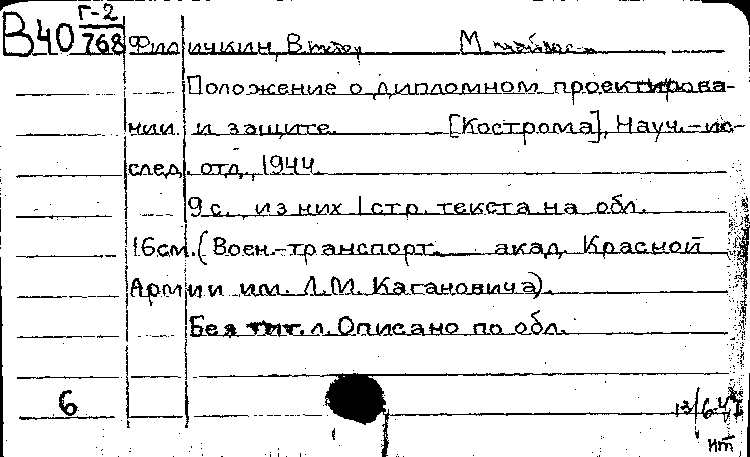 В40 Г-2
768 Филичкин, Виктор М
Положение о дипломном проектирова-
нии и защите. [Кострома], Науч.-ис-
след. отд., 1944.
9 с., из них 1 стр. текста на обл.
16 см. (Воен.-транспорт. акад. Красной
Армии им. Л.М. Кагановича).
Без тит. л. Описано по обл.
6